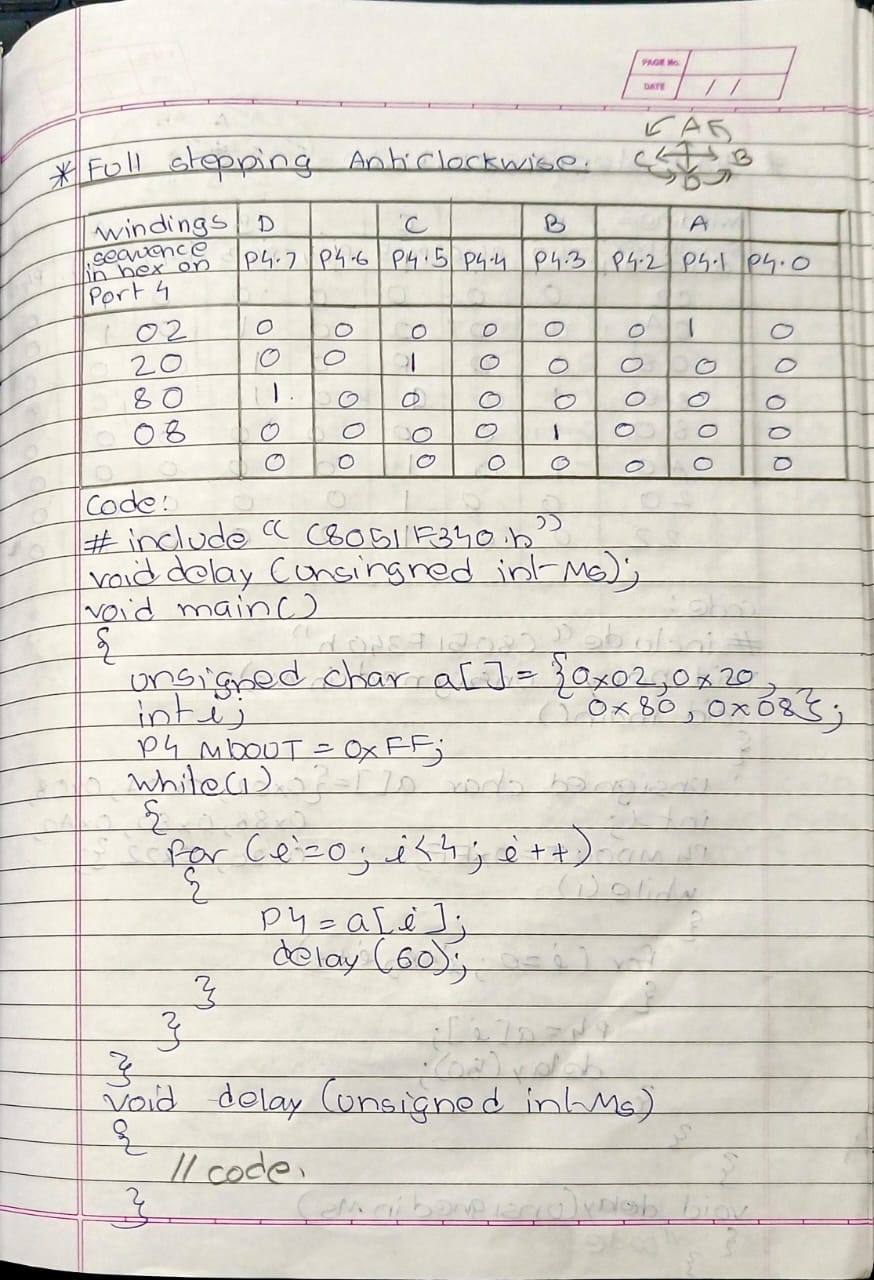 PAGE No.
DATE / /
A
C B
D
* Full stepping Anticlockwise.
windings D C B A
sequence in hex on Port 4 P4.7 P4.6 P4.5 P4.4 P4.3 P4.2 P4.1 P4.0
02 0 0 0 0 0 0 1 0
20 0 0 1 0 0 0 0 0
80 1 0 0 0 0 0 0 0
08 0 0 0 0 1 0 0 0
0 0 0 0 0 0 0 0
Code:
# include "C8051F340.h"
void delay (unsingned int Ms);
void main()
{
unsigned char a[] = {0x02, 0x20,
int i; 0x80, 0x08};
P4 MDOUT = 0xFF;
while(1)
{
for (i=0; i<4; i++)
{
P4 = a[i];
delay (60);
}
}
}
void delay (unsigned int Ms)
{
// code.
}